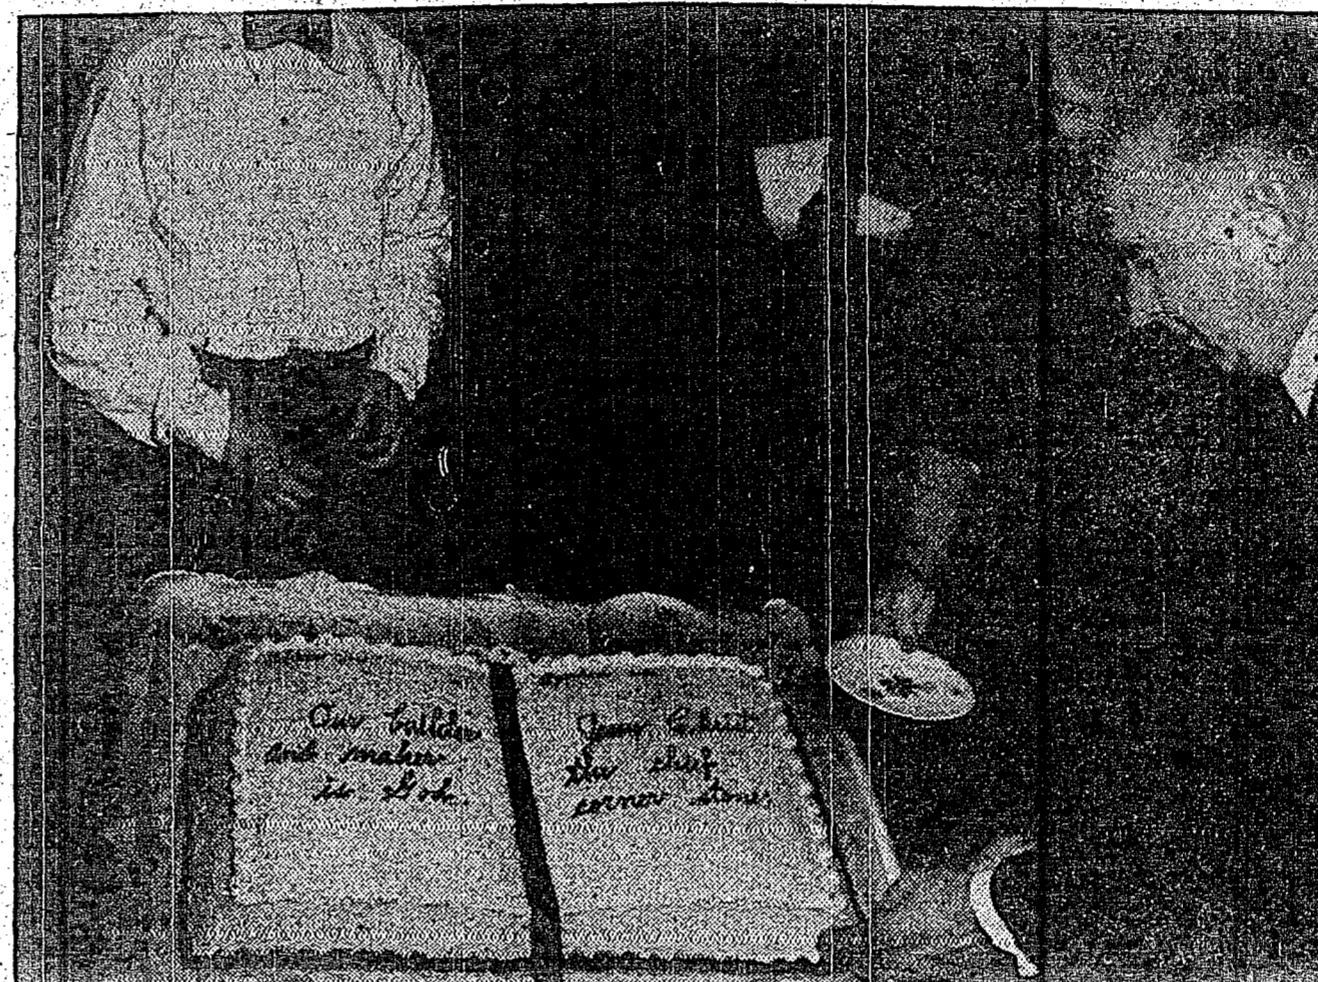 Our builder
and maker
is God.
Jesus Christ
the chief
corner stone.